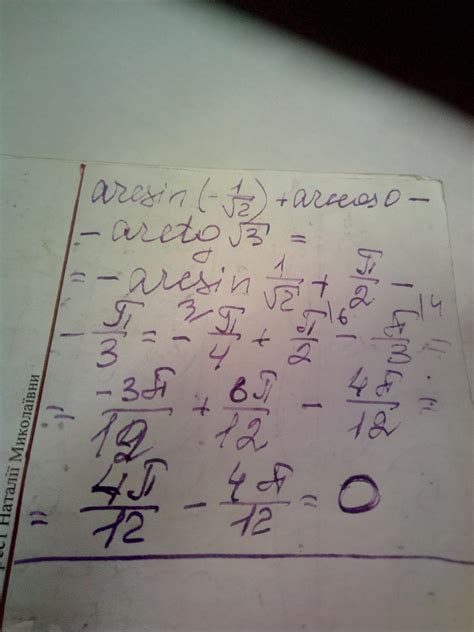 arcsin(-1/√2) + arccos 0 -
- arctg √3 =
= - arcsin 1/√2 + π/2 -
- π/3 = - ³⁾π/4 + π/2 ⁽⁶ - π/3 ⁽⁴ =
= -3π/12 + 6π/12 - 4π/12 =
= 4π/12 - 4π/12 = 0
Наталії Миколаївни